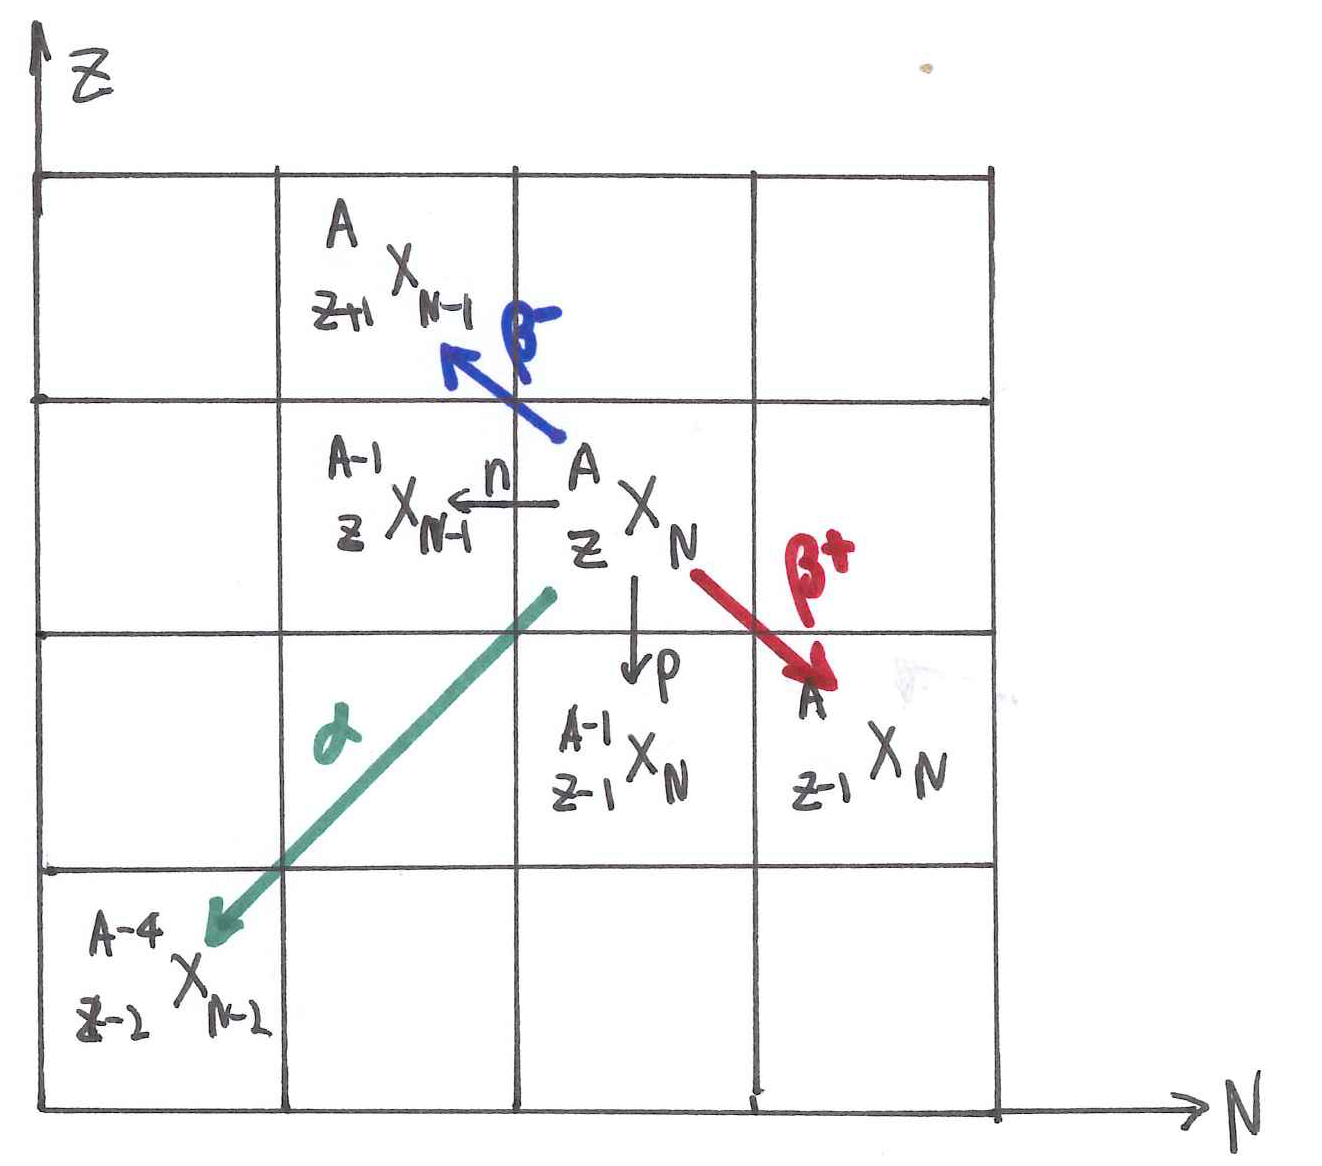 Z
A
Z+1 X N-1
β-
A-1
Z X N-1
n
A
Z X N
β+
p
α
A-1
Z-1 X N
A
Z-1 X N
A-4
Z-2 X N-2
N